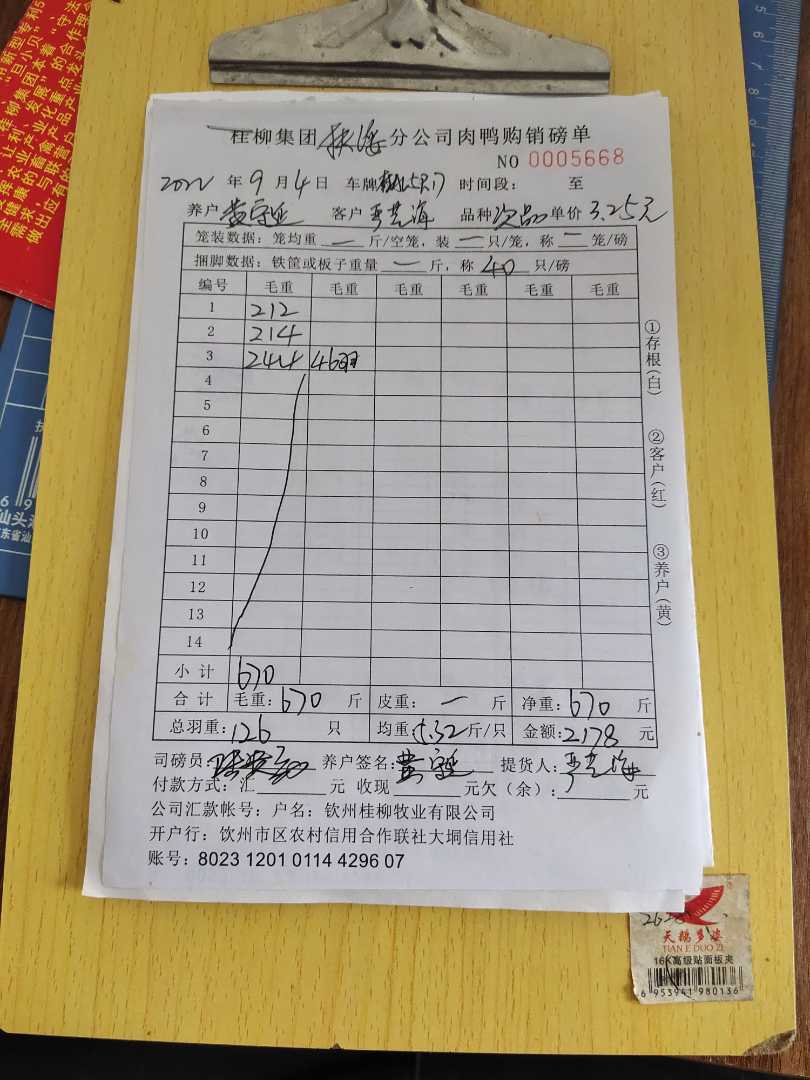 桂柳集团 分公司肉鸭购销磅单
NO 0005668
2022 年 9 月 4 日 车牌 时间段： 至
养户 黄 客户 海 品种 次品 单价 3.25元
笼装数据：笼均重 一 斤/空笼，装 一 只/笼，称 一 笼/磅
捆脚数据：铁筐或板子重量 一 斤，称 40 只/磅
编号 毛重 毛重 毛重 毛重 毛重 毛重
1 212
2 214
3 244 46羽
4
5
6
7
8
9
10
11
12
13
14
小计 670
合计 毛重：670 斤 皮重：一 斤 净重：670 斤
总羽重：126 只 均重 5.32 斤/只 金额：2178 元
司磅员： 养户签名：黄 提货人： 海
付款方式：汇 元 收现 元欠（余）： 元
公司汇款帐号：户名：钦州桂柳牧业有限公司
开户行：饮州市区农村信用合作联社大垌信用社
账号：8023 1201 0114 4296 07
①存根(白)
②客户(红)
③养户(黄)
天鹅多姿
TIAN E DUO ZI
16K高级贴面板夹
6 953941 980136